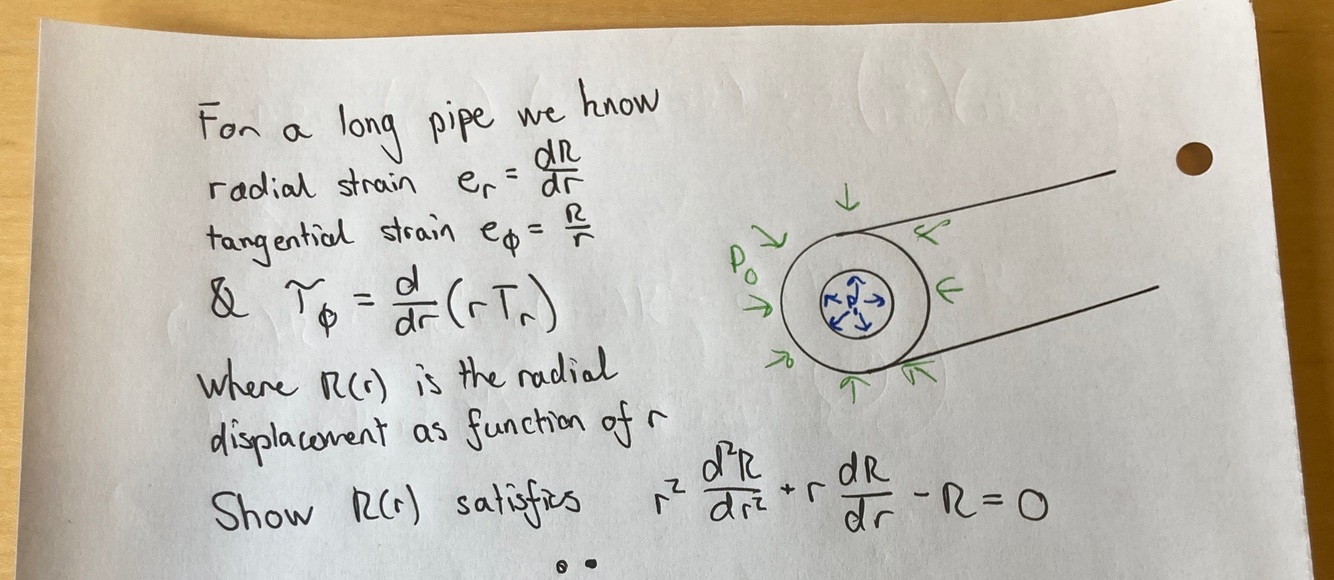 For a long pipe we know
radial strain e_r = dR/dr
tangential strain e_ϕ = R/r
& τ_ϕ = d/dr (r T_r)
where R(r) is the radial
displacement as function of r
Show R(r) satisfies r² d²R/dr² + r dR/dr - R = 0
P_o